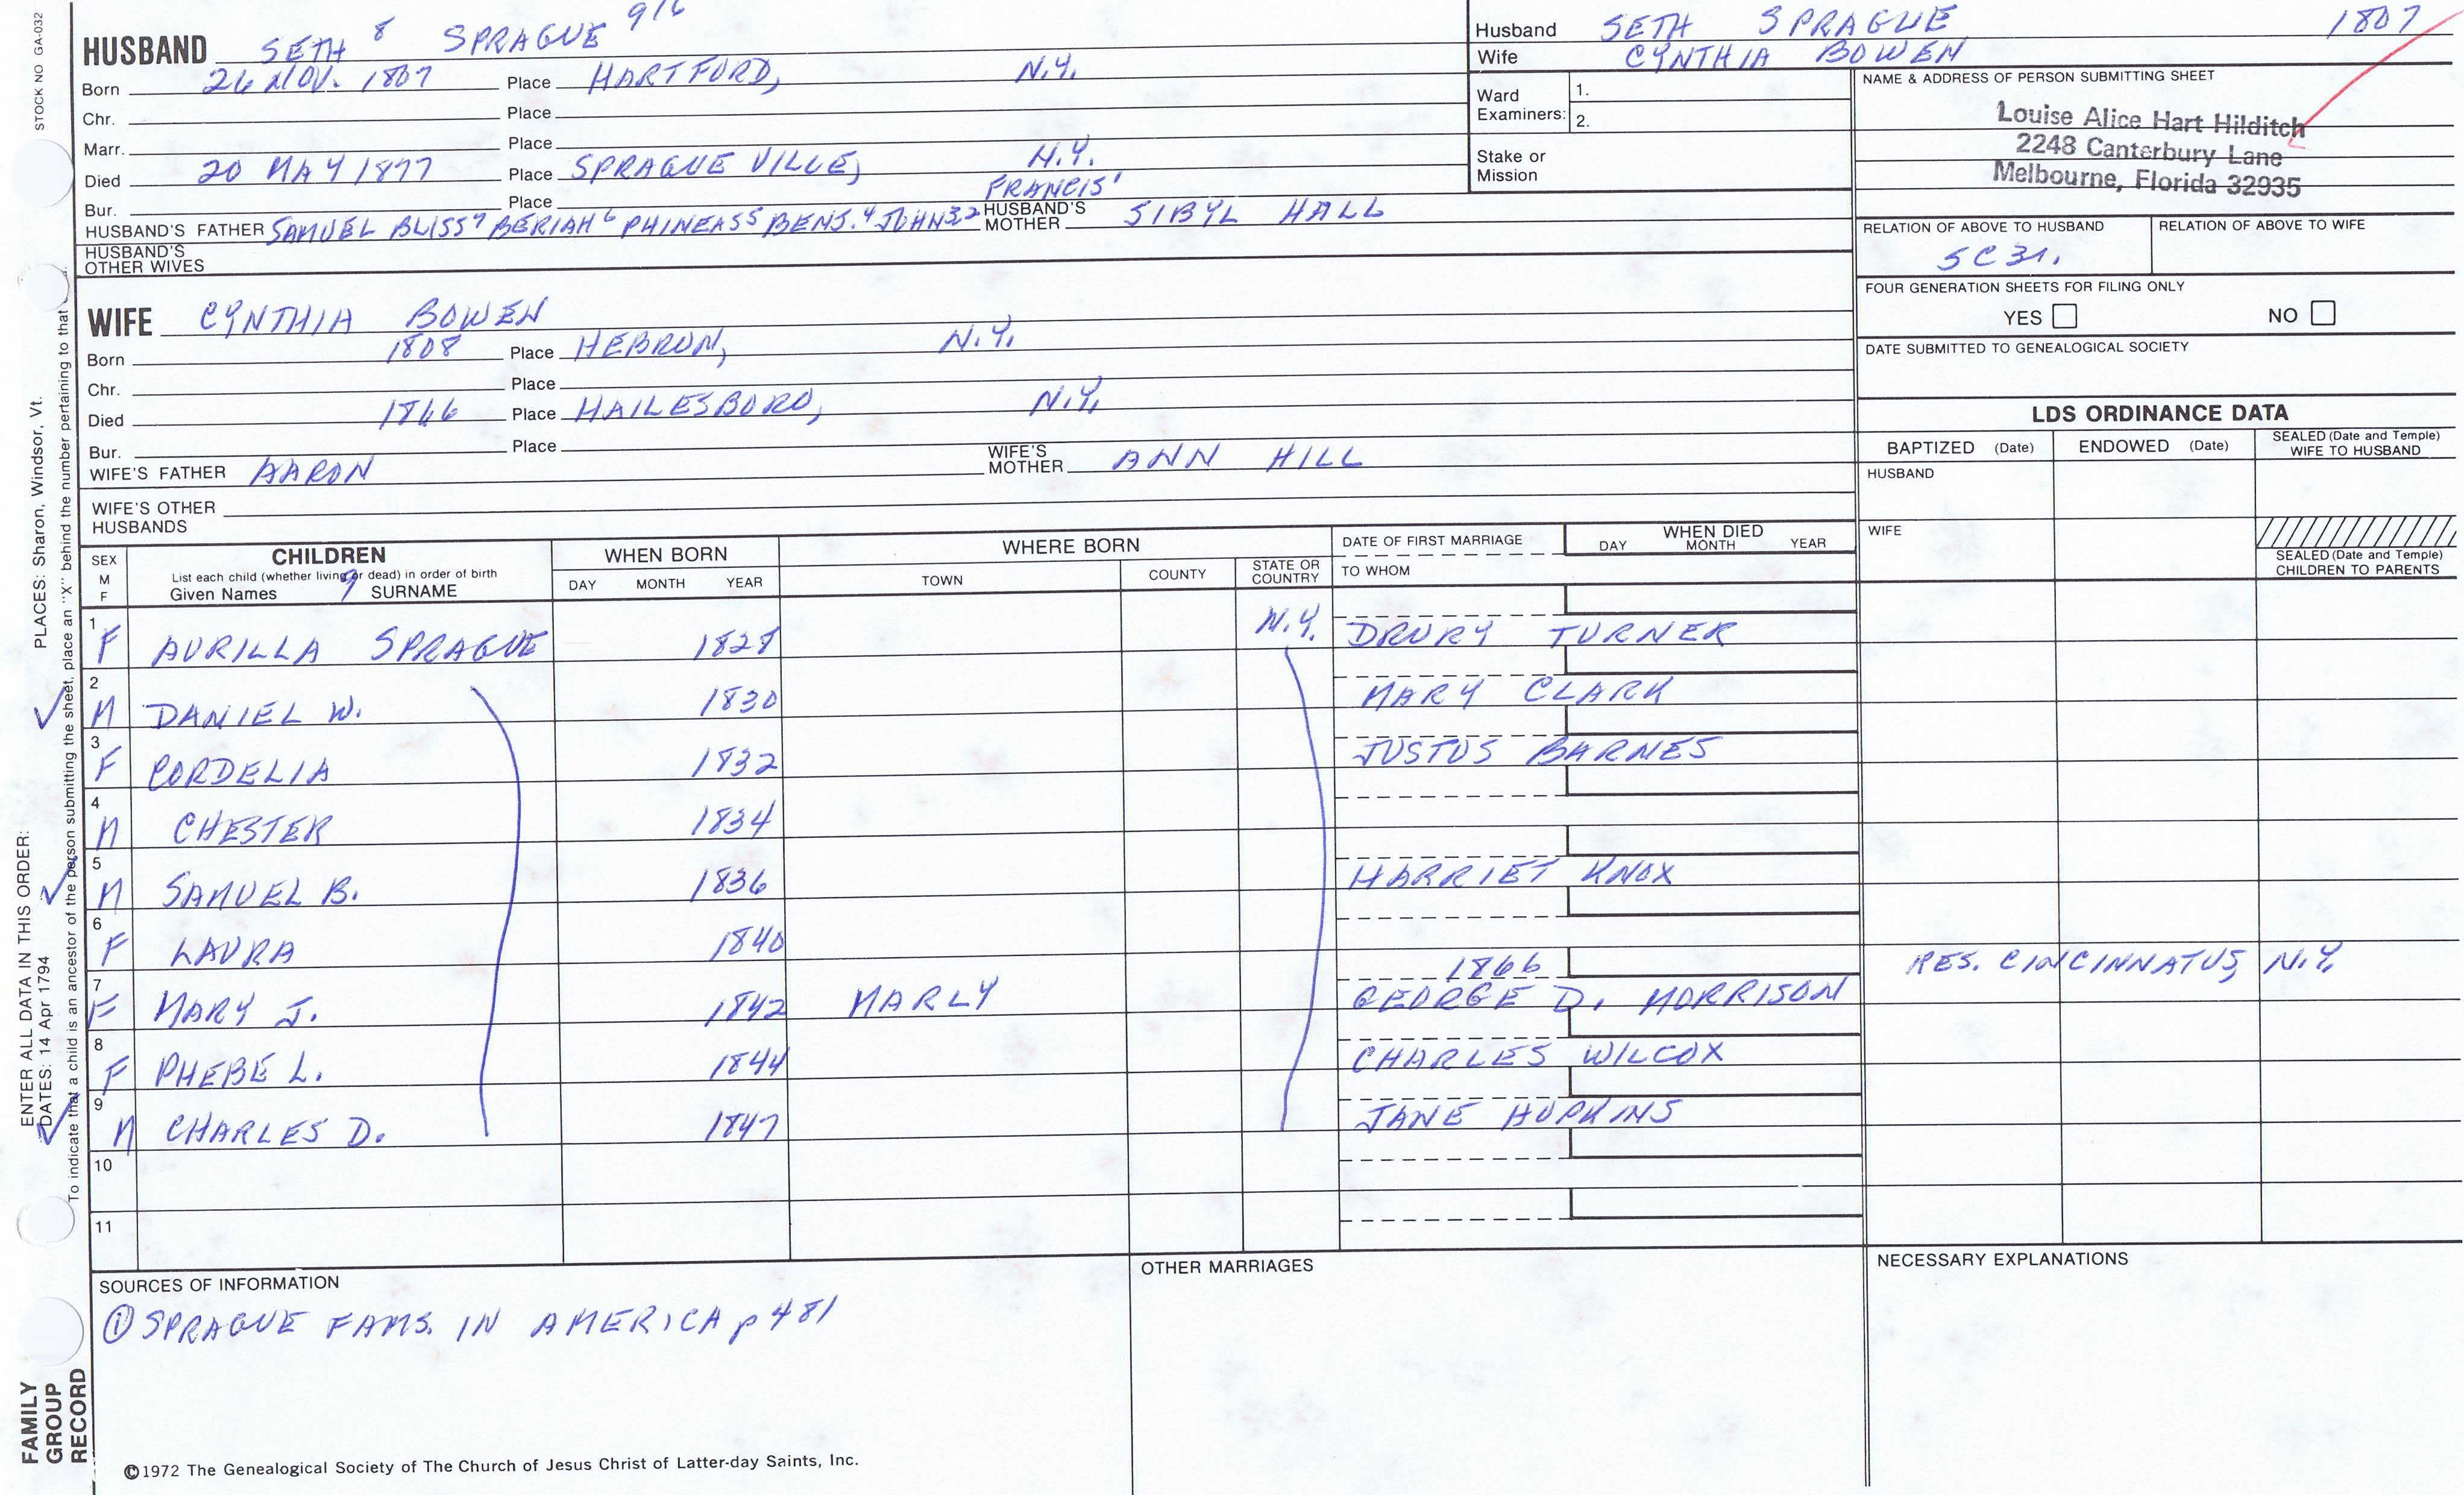 STOCK NO GA-032
HUSBAND SETH 8 SPRAGUE 916
Born 26 NOV. 1807 Place HARTFORD, N.Y.
Chr. Place
Marr. Place
Died 20 MAY 1877 Place SPRAGUE VILLE, N.Y.
Bur. Place
FRANCIS'
HUSBAND'S FATHER SAMUEL BLISS7 BERIAH6 PHINEAS5 BENJ.4 JOHN32 HUSBAND'S MOTHER SIBYL HALL
HUSBAND'S OTHER WIVES
WIFE CYNTHIA BOWEN
Born 1808 Place HEBRON, N.Y.
Chr. Place
Died 1866 Place HAILESBORO, N.Y.
Bur. Place
WIFE'S FATHER AARON WIFE'S MOTHER ANN HILL
WIFE'S OTHER HUSBANDS
Husband SETH SPRAGUE 1807
Wife CYNTHIA BOWEN
Ward Examiners: 1.
2.
Stake or Mission
NAME & ADDRESS OF PERSON SUBMITTING SHEET
Louise Alice Hart Hilditch
2248 Canterbury Lane
Melbourne, Florida 32935
RELATION OF ABOVE TO HUSBAND RELATION OF ABOVE TO WIFE
5C3R.
FOUR GENERATION SHEETS FOR FILING ONLY
YES NO
DATE SUBMITTED TO GENEALOGICAL SOCIETY
LDS ORDINANCE DATA
BAPTIZED (Date) ENDOWED (Date) SEALED (Date and Temple) WIFE TO HUSBAND
HUSBAND
WIFE
SEALED (Date and Temple) CHILDREN TO PARENTS
SEX M F CHILDREN WHEN BORN WHERE BORN DATE OF FIRST MARRIAGE WHEN DIED
List each child (whether living or dead) in order of birth
Given Names 9 SURNAME DAY MONTH YEAR TOWN COUNTY STATE OR COUNTRY TO WHOM DAY MONTH YEAR
1 F AURILLA SPRAGUE 1828 N.Y. DRURY TURNER
2 M DANIEL W. 1830 MARY CLARK
3 F CORDELIA 1832 JUSTUS BARNES
4 M CHESTER 1834
5 M SAMUEL B. 1836 HARRIET KNOX
6 F LAURA 1840
7 F MARY J. 1842 MARLY 1866 GEORGE D. MORRISON RES. CINCINNATUS, N.Y.
8 F PHEBE L. 1844 CHARLES WILCOX
9 M CHARLES D. 1847 JANE HOPKINS
10
11
SOURCES OF INFORMATION
① SPRAGUE FAMS. IN AMERICA p 481
OTHER MARRIAGES
NECESSARY EXPLANATIONS
©1972 The Genealogical Society of The Church of Jesus Christ of Latter-day Saints, Inc.
ENTER ALL DATA IN THIS ORDER:
DATES: 14 Apr 1794
PLACES: Sharon, Windsor, Vt.
To indicate that a child is an ancestor of the person submitting the sheet, place an "X" behind the number pertaining to that
FAMILY
GROUP
RECORD